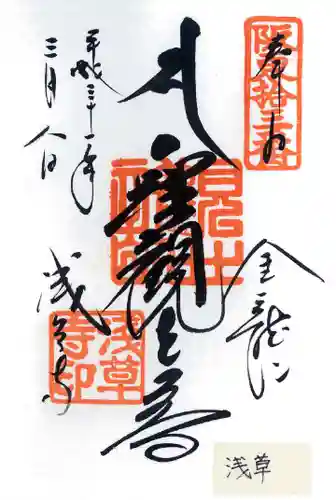 奉拝
阪東拾三番
金龍山
聖観世音
平成三十一年
三月八日
浅草寺
浅草寺印
浅草